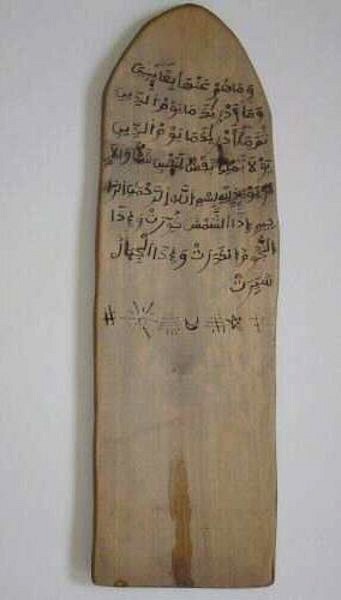 وَمَا هُمْ عَنْهَا بِغَآئِبِينَ
وَمَا أَدْرَىٰكَ مَا يَوْمُ الدِّينِ
ثُمَّ مَا أَدْرَىٰكَ مَا يَوْمُ الدِّينِ
يَوْمَ لَا تَمْلِكُ نَفْسٌ لِنَفْسٍ شَيْئًا وَالْأَ
بِسْمِ اللَّهِ الرَّحْمَٰنِ الرَّ
حِيمِ إِذَا الشَّمْسُ كُوِّرَتْ وَإِذَا
النُّجُومُ انْكَدَرَتْ وَإِذَا الْجِبَالُ
سُيِّرَتْ